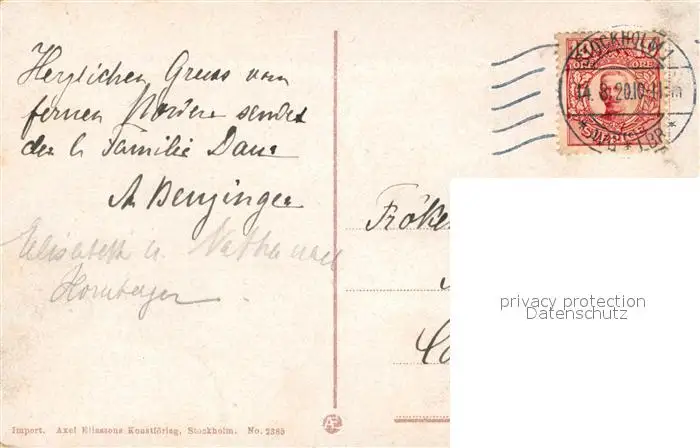 Herzlichen Gruss vom
fernen Norden sendet
der l. Familie
A Benzinger
Elisabeth u. Nathanael
Hornberger
STOCKHOLM 1
14. 8. 20.10-11 fm
AVG. LBR
ÖRE ÖRE
SVERIGE
Fröken
privacy protection
Datenschutz
Import. Axel Eliassons Konstförlag, Stockholm. No. 2385